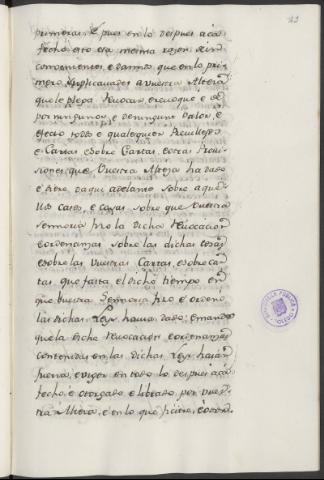 primeras, e pues en lo despues acá
fecho esto esa mesma razon e in
convenientes, e daños que en lo pri
mero, suplicamos a vuestra Alteza
que le plega revocar e revoque e dé
por ningunos, e de ningun valor, e
efecto todos e qualesquier Previllejos
e Cartas e sobre Cartas, e otras Provi
siones que Vuestra Alteza ha dado
e diere daqui adelante sobre aque
llos casos, e cosas sobre que vuestra
Señoria fizo la dicha revocacion
e ordenanzas sobre las dichas cosas
e sobre las vuestras Cartas, e sobre car
tas que fasta el dicho tiempo en
que vuestra Señoria fizo e ordenó
las dichas Leyes havia dado, e mande
que la dicha revocacion, e ordenanzas
contenidas en las dichas Leyes haian
fuerza, e vigor en todo lo despues acá
fecho, e otorgado e librado por vues
tra Alteza, e en lo que ficiere, e otorg.